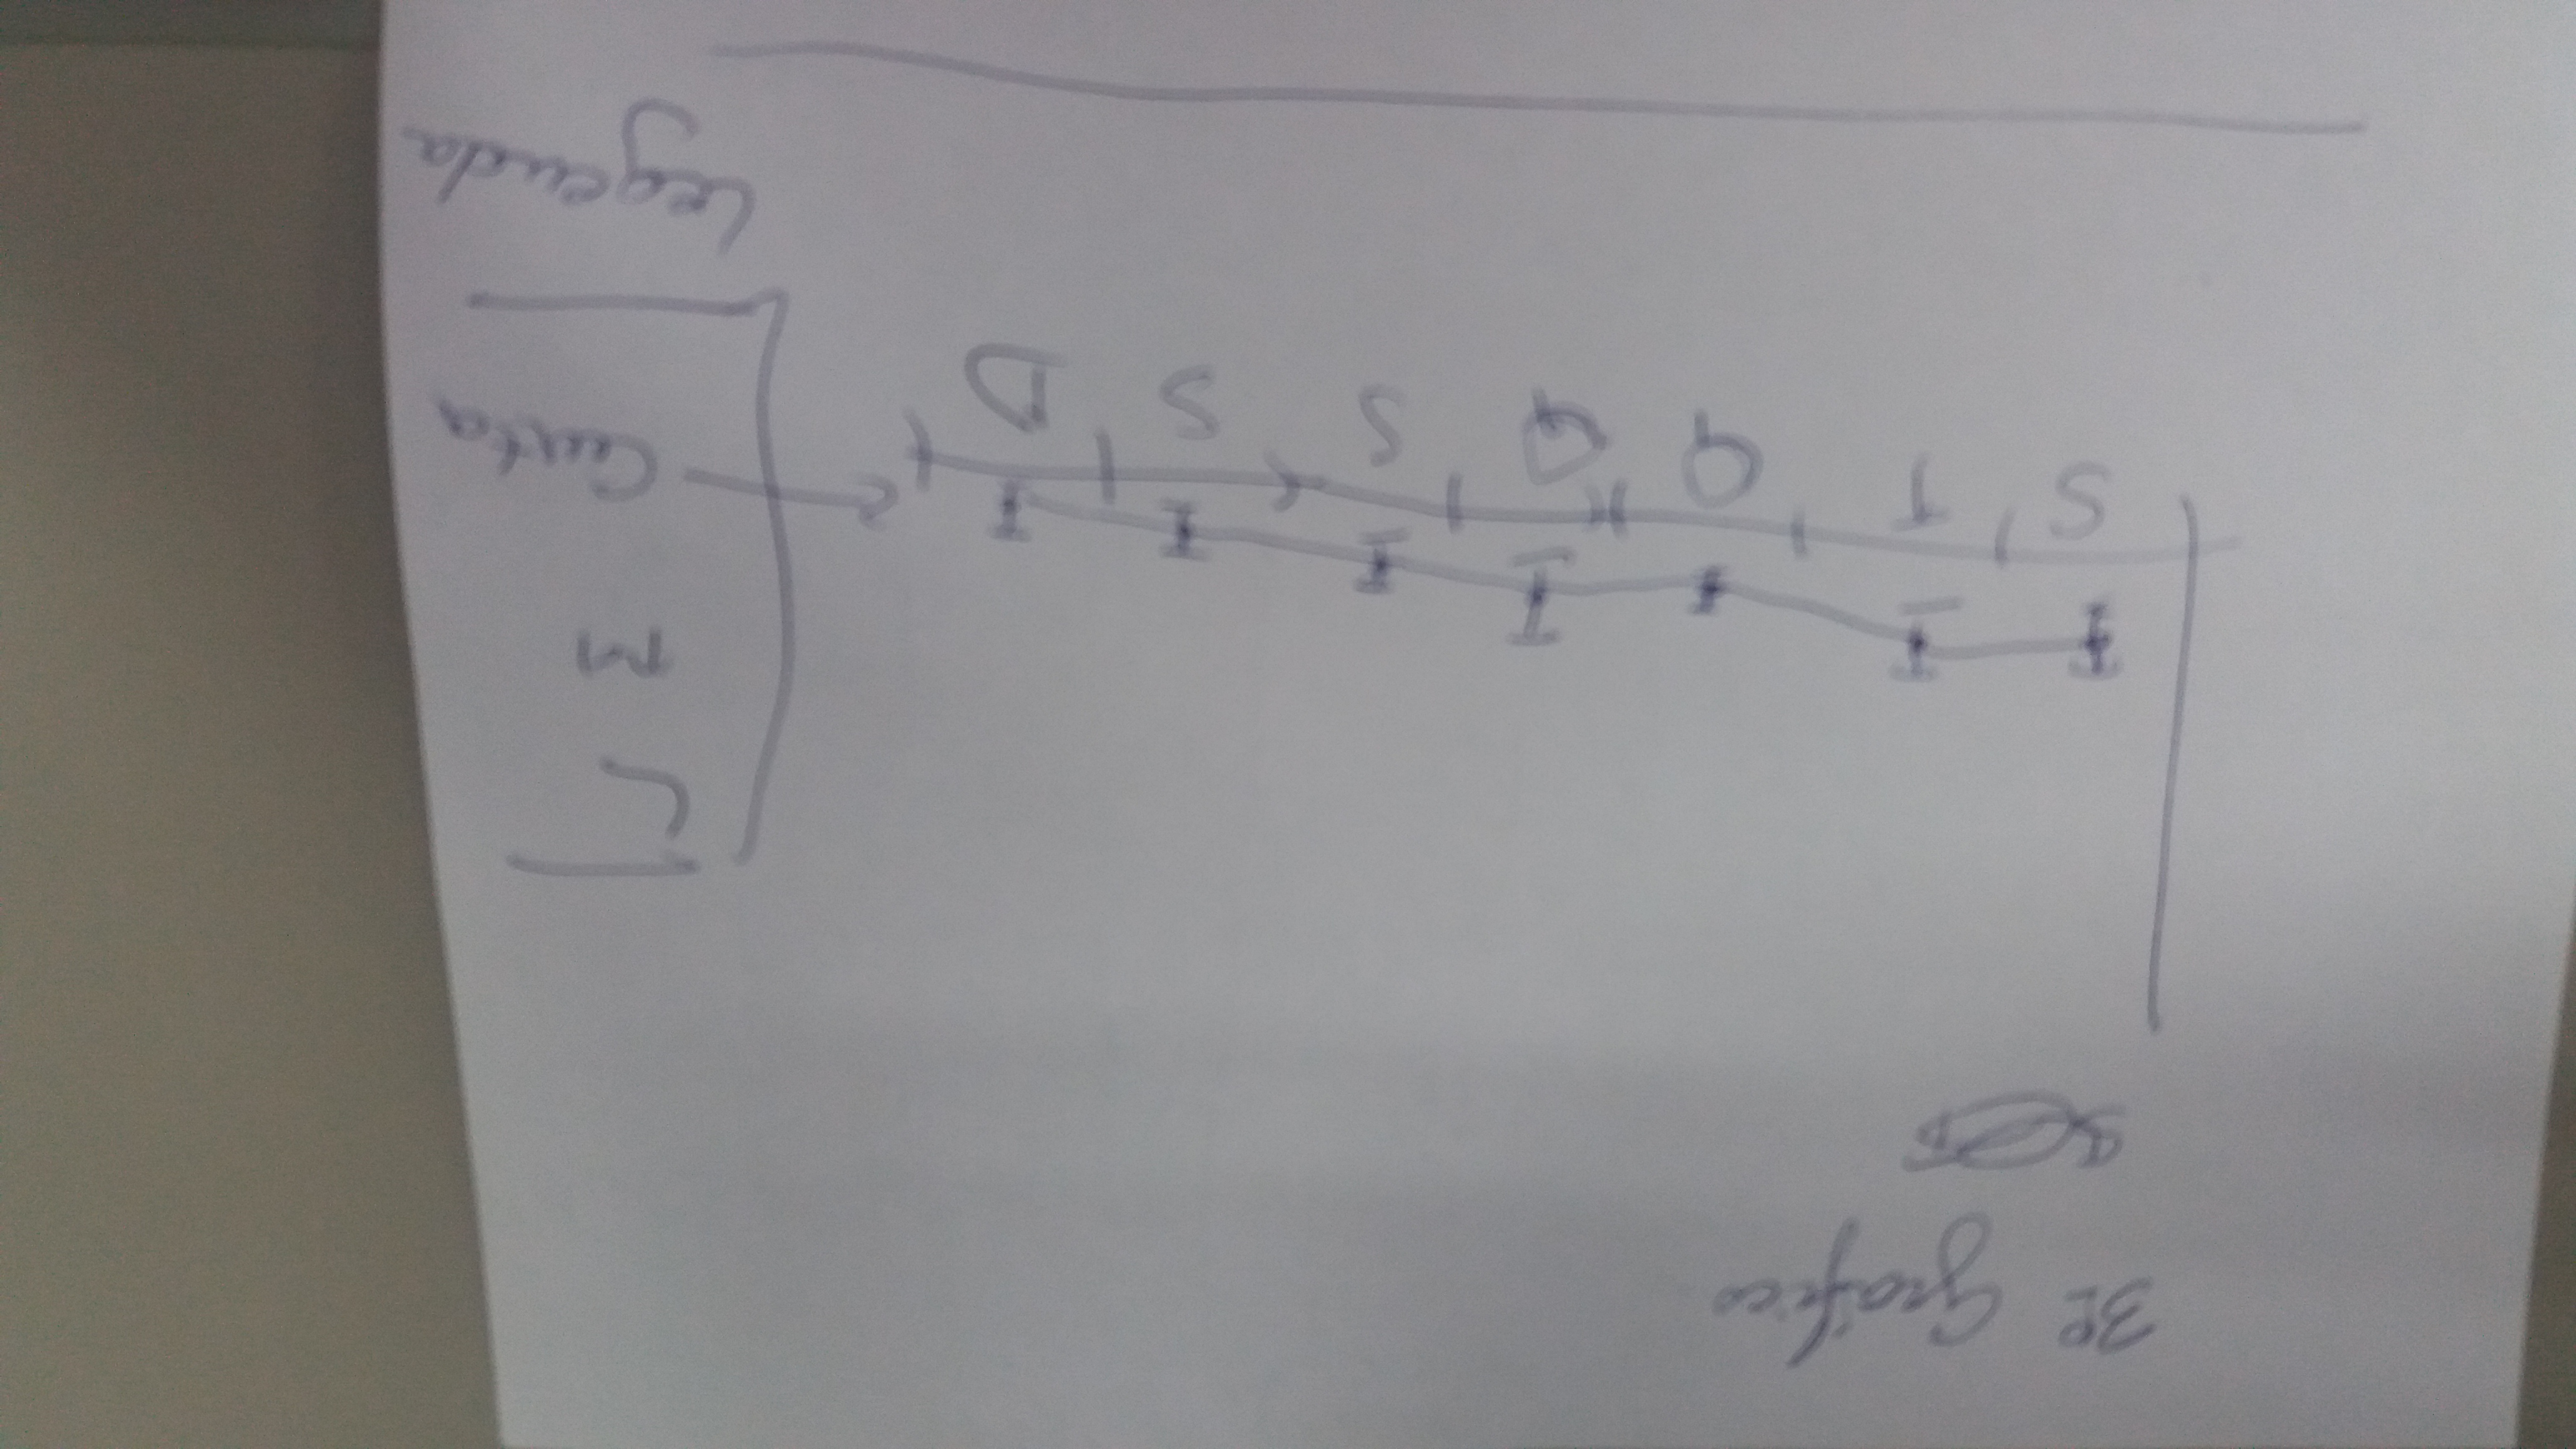 3º Gráfico
S T Q Q S S D
L
M
Curta
Legenda